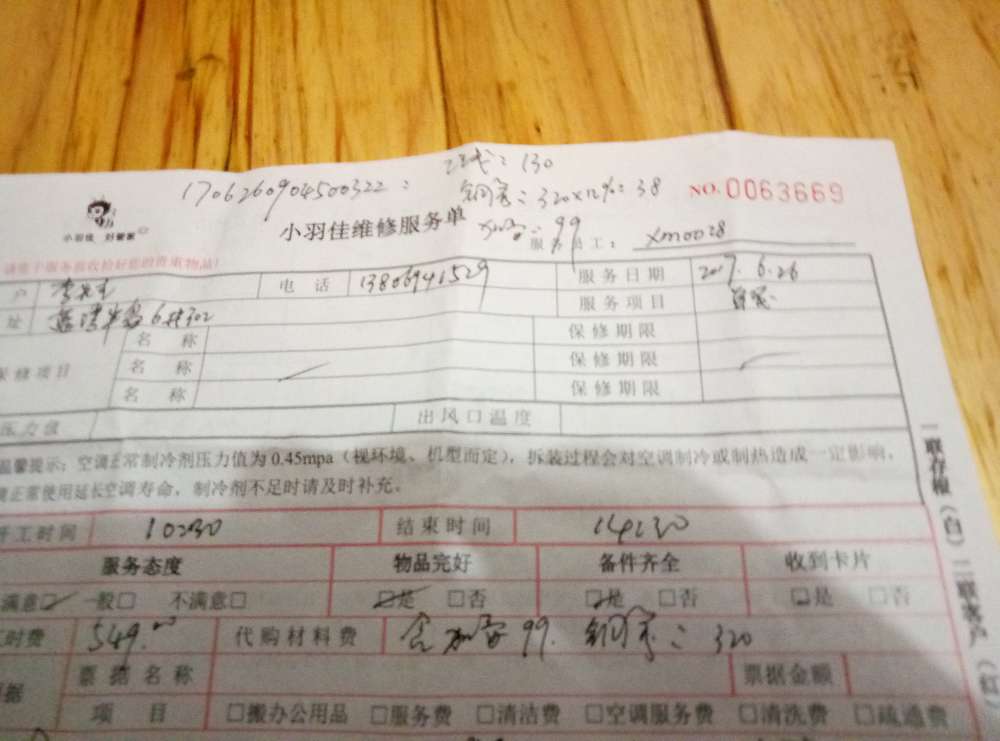 130
1706260904500322:
铜管:320×12%=38
NO.0063669
小羽佳 好管家
小羽佳维修服务单
加雪:99
服务员工: xm0028
请您于服务前收检好您的贵重物品!
户 李先生 电 话 13806941529 服务日期 2017.6.26
址 6#302 服务项目
保修项目 名 称 保修期限
名 称 保修期限
名 称 保修期限
压力值 出风口温度
温馨提示:空调正常制冷剂压力值为 0.45mpa(视环境、机型而定),拆装过程会对空调制冷或制热造成一定影响,
正常使用延长空调寿命,制冷剂不足时请及时补充。
开工时间 10:30 结束时间 14:30
服务态度 物品完好 备件齐全 收到卡片
满意□ 一般□ 不满意□ □是 □否 □是 □否 □是 □否
工时费 549.00 代购材料费 含加雪99. 铜管:320
票据 票据名称 票据金额
项 目 □搬办公用品 □服务费 □清洁费 □空调服务费 □清洗费 □疏通费
一联存根(白)二联客户(红)